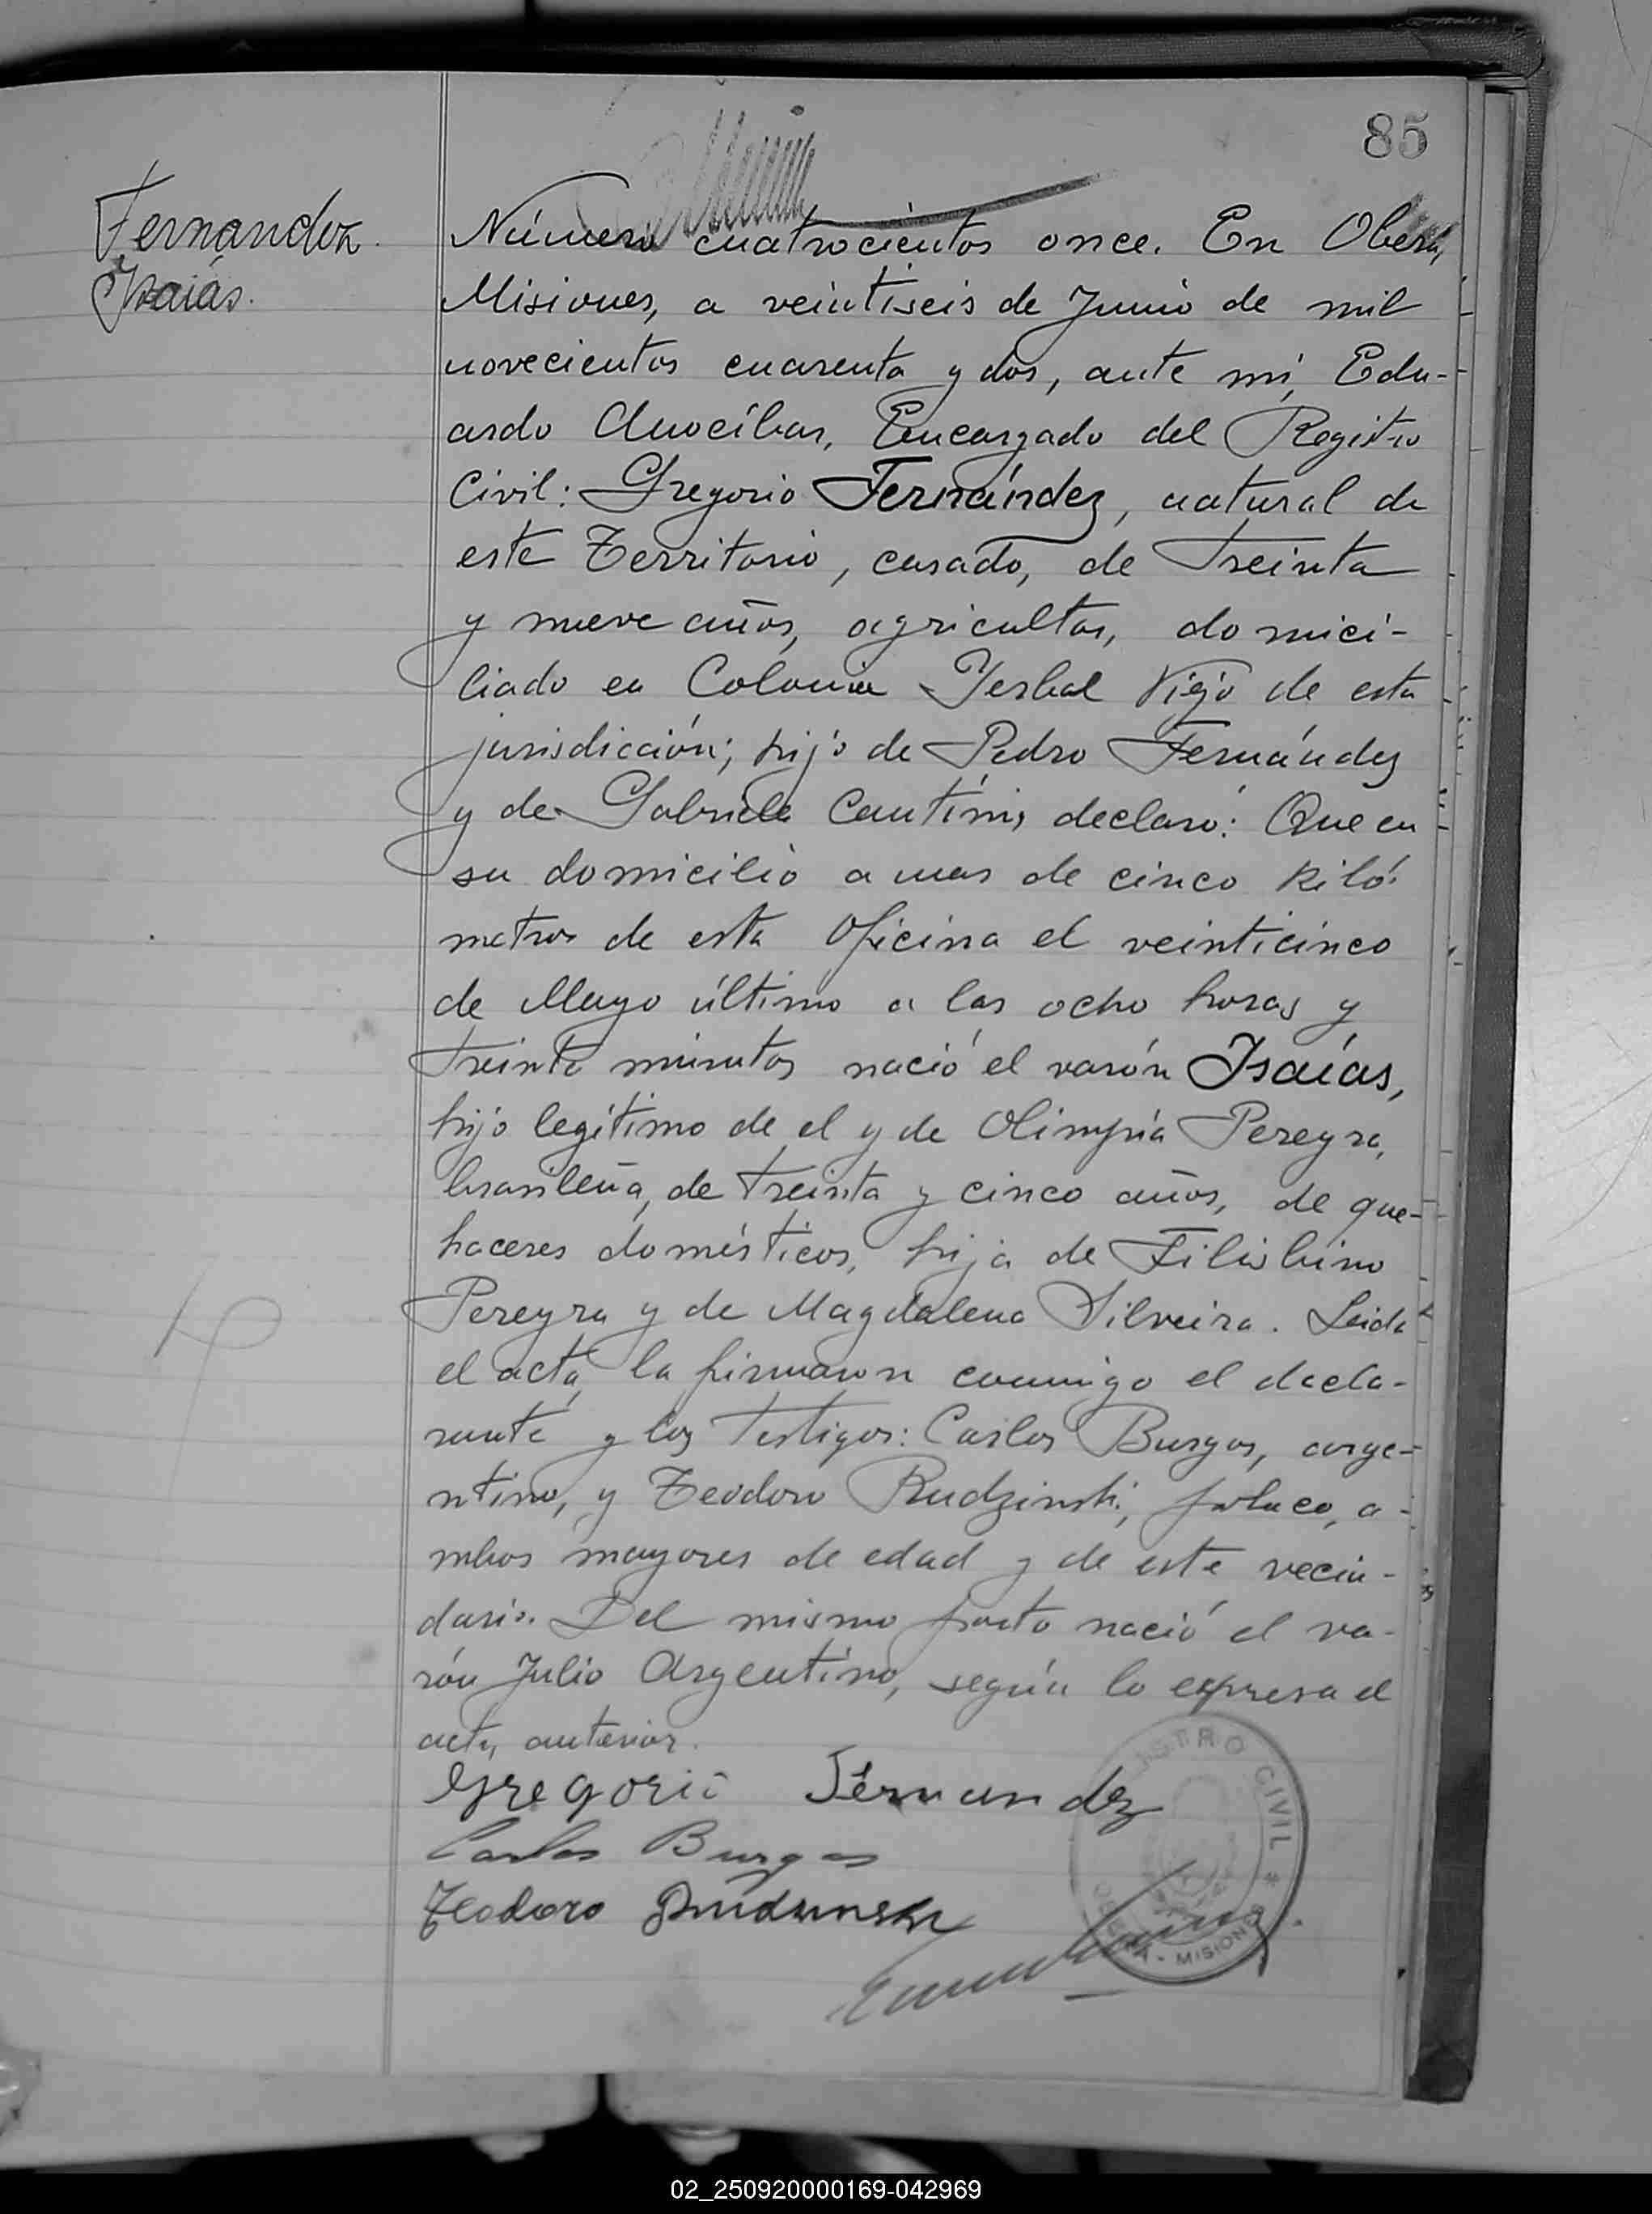 85
Fernandez
Isaías.
Número cuatrocientos once. En Oberá,
Misiones, a veintiseis de Junio de mil
novecientos cuarenta y dos, ante mí, Edu-
ardo Anocíbar, Encargado del Registro
Civil: Gregorio Fernández, natural de
este Territorio, casado, de treinta
y nueve años, agricultor, domici-
liado en Colonia Yerbal Viejo de esta
jurisdicción; hijo de Pedro Fernández
y de Gabriela declaró: Que en
su domicilio a mas de cinco kiló-
metros de esta Oficina el veinticinco
de Mayo último a las ocho horas y
treinta minutos nació el varón Isaías,
hijo legítimo de el y de Olimpia Pereyra,
brasileña, de treinta y cinco años, de que-
haceres domésticos, hija de Filisbino
Pereyra y de Magdalena Silveira. Leida
el acta, la firmaron conmigo el decla-
rante y los testigos: Carlos Burgos, arge-
ntino, y Teodoro Rudzinski, polaco, a-
mbos mayores de edad y de este vecin-
dario. Del mismo parto nació el va-
rón Julio Argentino, según lo expresa el
acta anterior.
Gregorio Fernandez
Carlos Burgos
Teodoro
REGISTRO CIVIL * OBERA - MISIONES
02_250920000169-042969